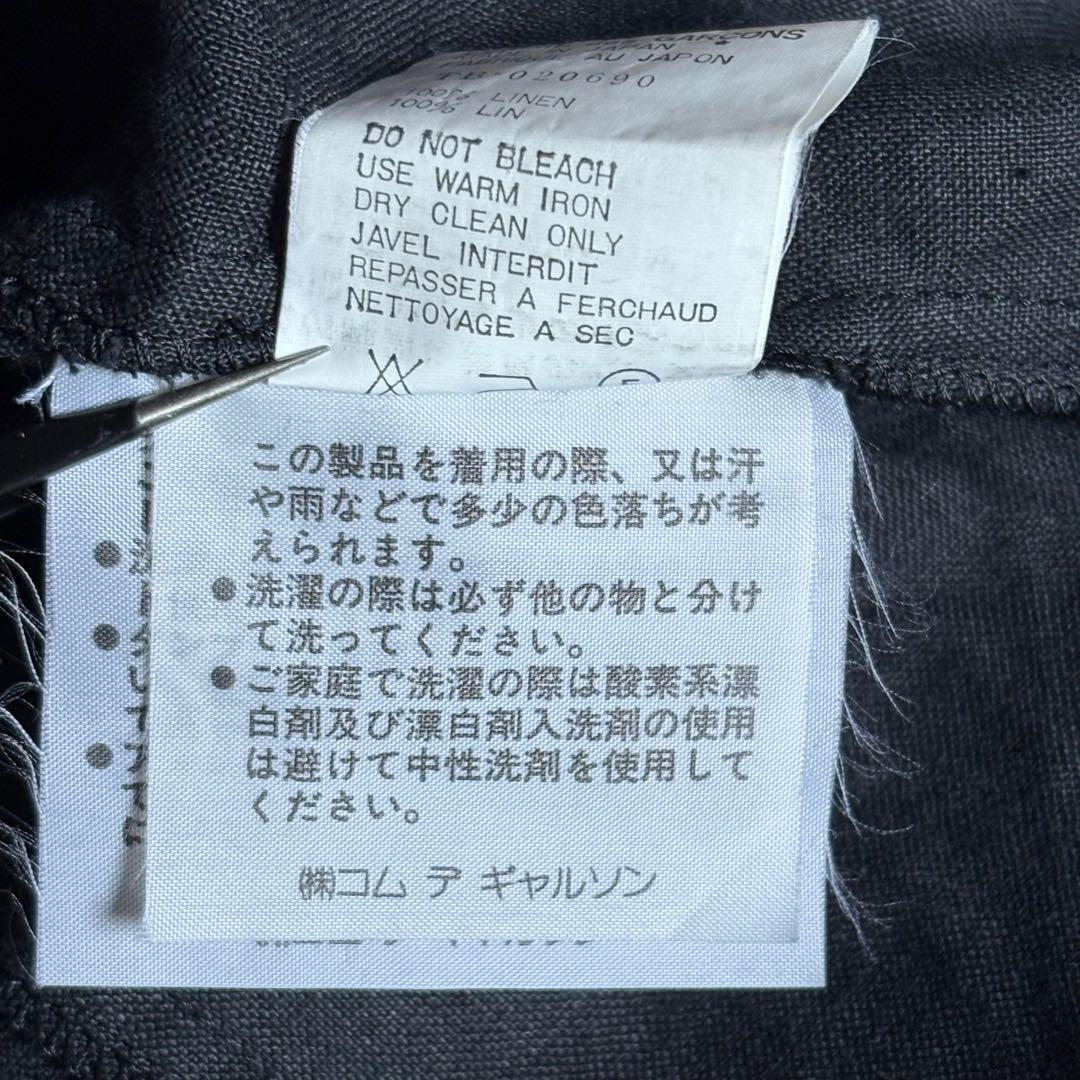 GARÇONS
IN JAPAN *
FABRIQUE AU JAPON
TB-020690
100% LINEN
100% LIN
DO NOT BLEACH
USE WARM IRON
DRY CLEAN ONLY
JAVEL INTERDIT
REPASSER A FERCHAUD
NETTOYAGE A SEC
この製品を着用の際、又は汗
や雨などで多少の色落ちが考
えられます。
●洗濯の際は必ず他の物と分け
て洗ってください。
●ご家庭で洗濯の際は酸素系漂
白剤及び漂白剤入洗剤の使用
は避けて中性洗剤を使用して
ください。
㈱コム デ ギャルソン